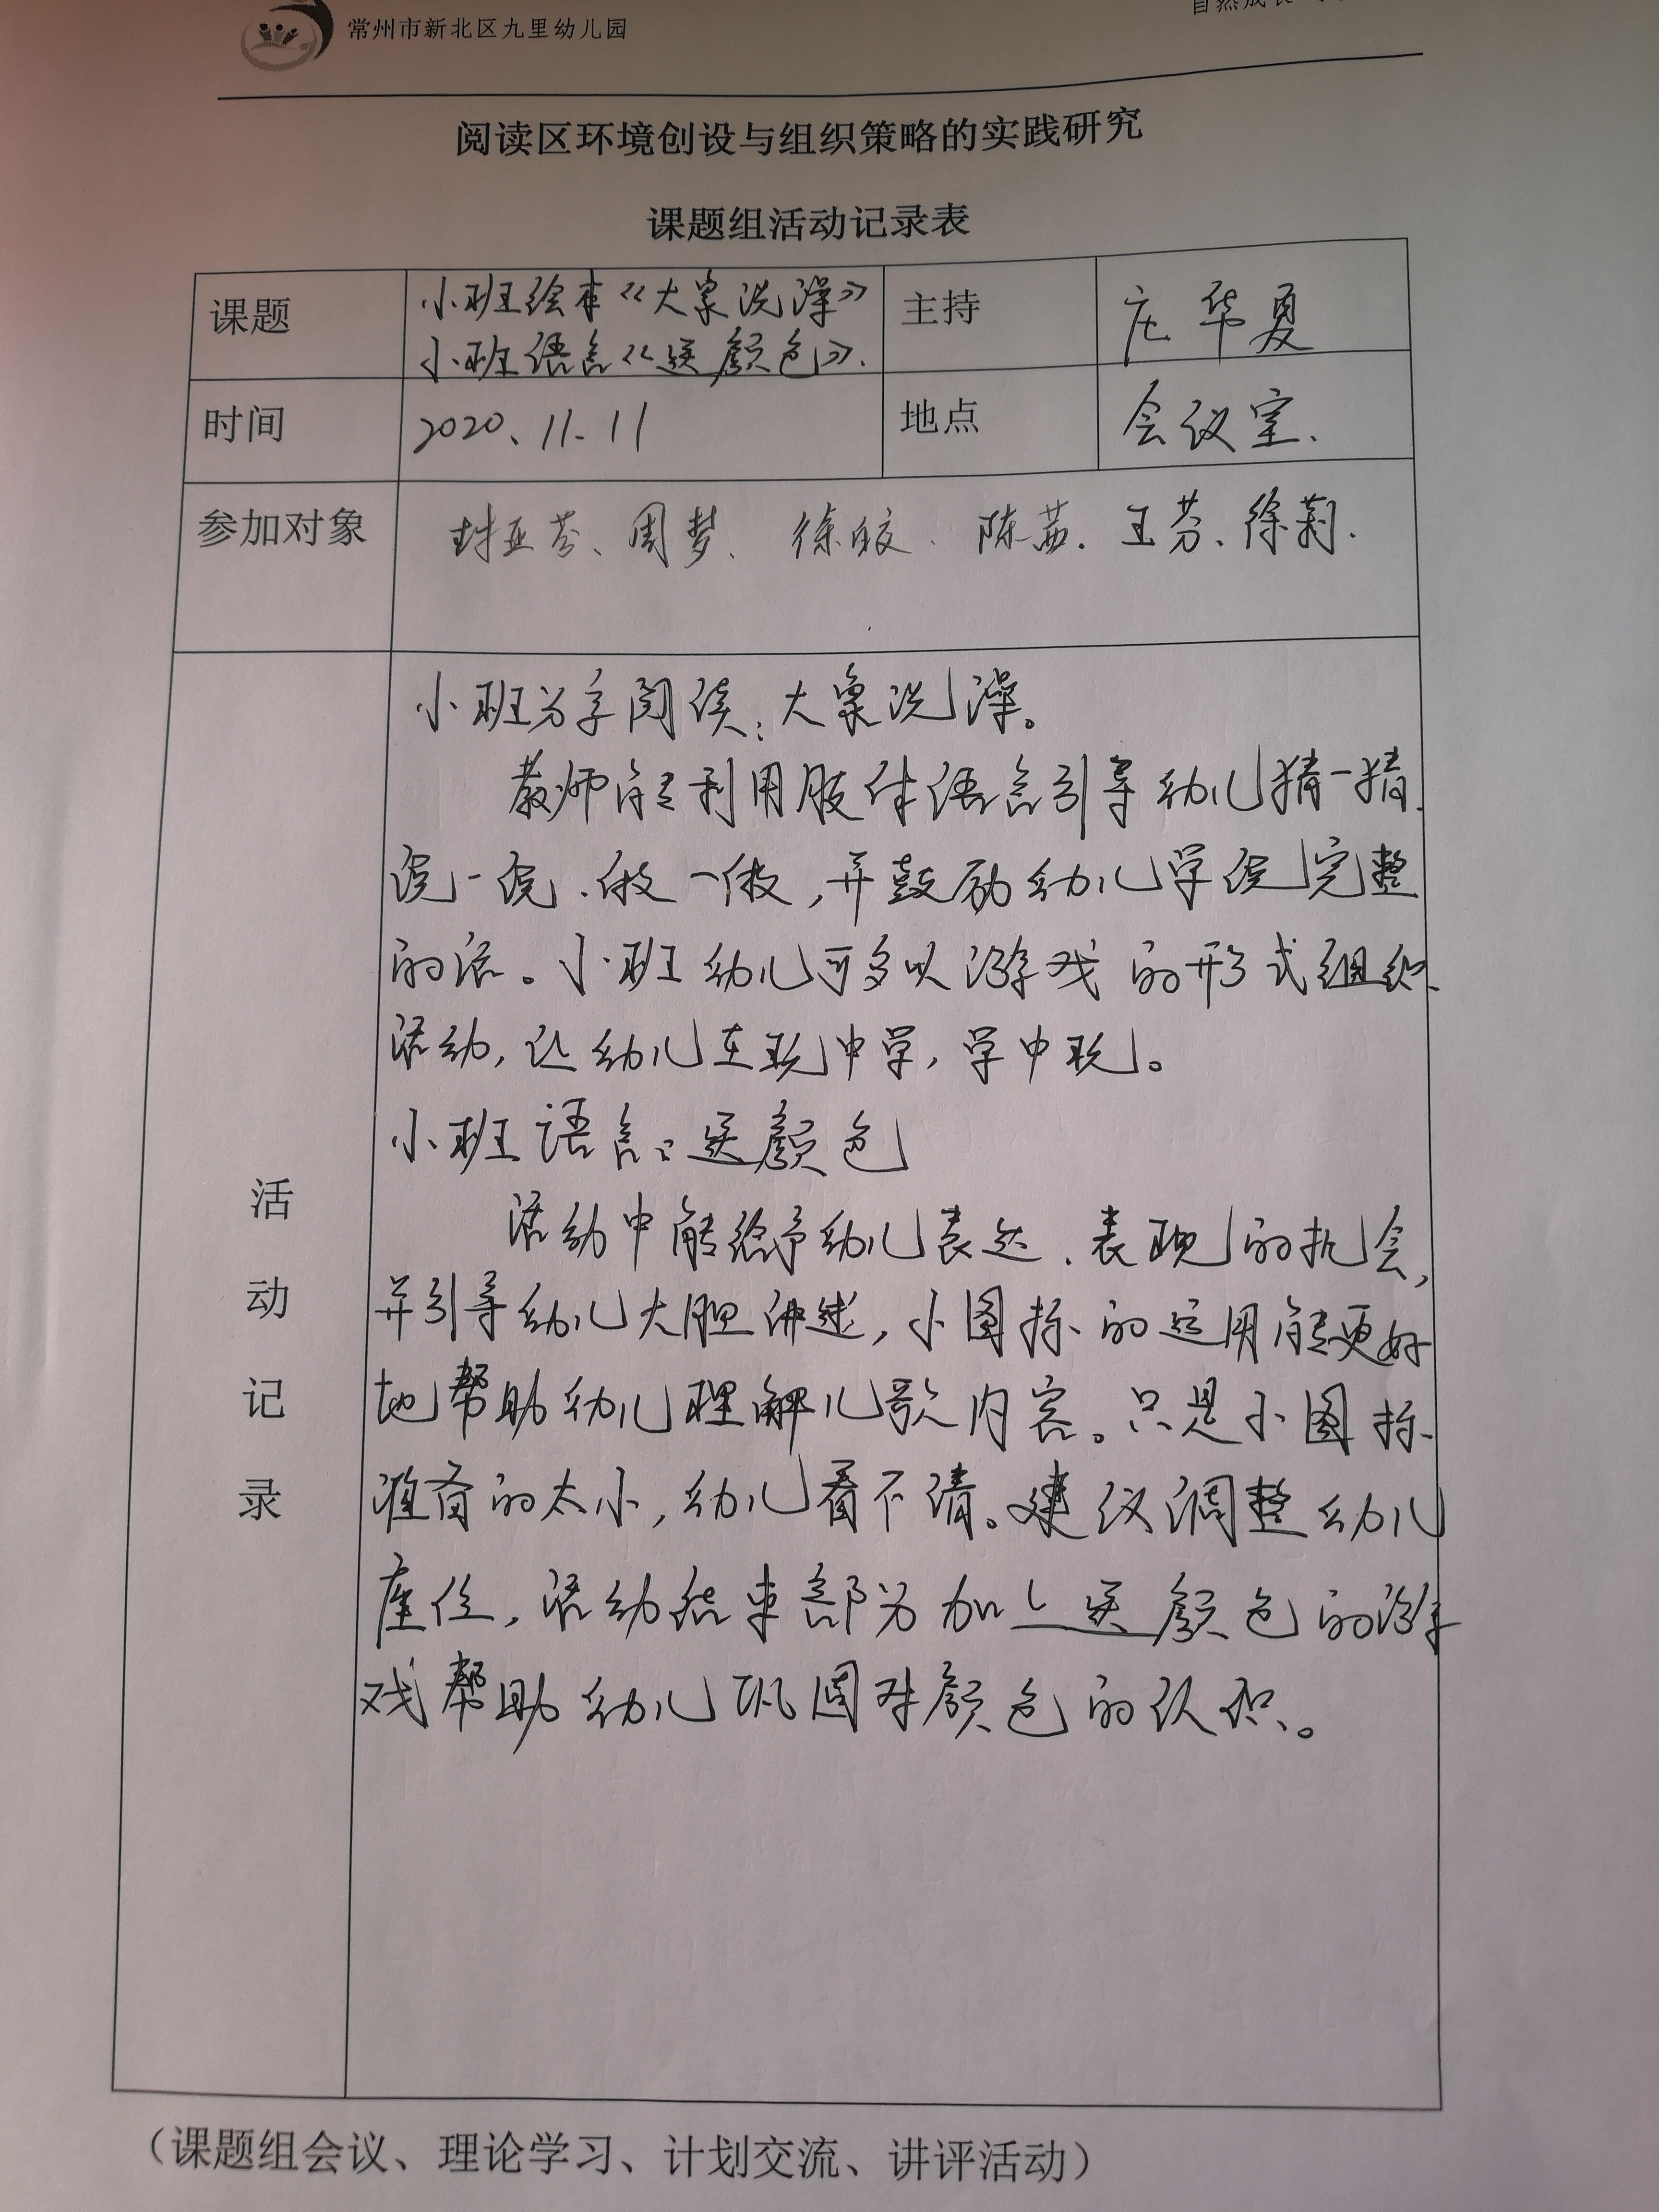 常州市新北区九里幼儿园
自然成长
阅读区环境创设与组织策略的实践研究
课题组活动记录表
课题
小班绘本《大象洗澡》
小班语言《送颜色》.
主持
庄华夏
时间
2020、11.11
地点
会议室.
参加对象
封亚芬、周梦、徐皎、陈茜.王芬、徐莉.
活动记录
小班分享阅读:大象洗澡。
教师能利用肢体语言引导幼儿猜一猜、
说一说、做一做,并鼓励幼儿学说完整
的话。小班幼儿可多以游戏的形式组织
活动,让幼儿在玩中学,学中玩。
小班语言:送颜色
活动中能给予幼儿表达、表现的机会,
并引导幼儿大胆讲述,小图标的运用能更好
地帮助幼儿理解儿歌内容。只是小图标
准备的太小,幼儿看不清。建议调整幼儿
座位,活动结束部分加上送颜色的游
戏帮助幼儿巩固对颜色的认识。
(课题组会议、理论学习、计划交流、讲评活动)